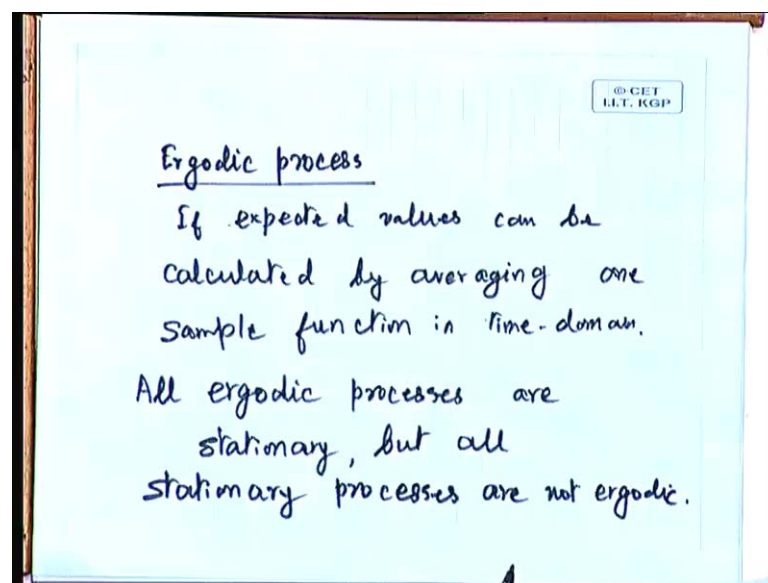 © CET
I.I.T. KGP
Ergodic process
If expected values can be
calculated by averaging one
sample function in time-domain.
All ergodic processes are
stationary, but all
stationary processes are not ergodic.